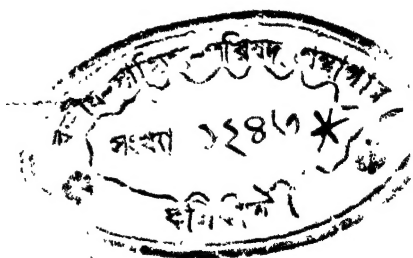 বঙ্গীয়-সাহিত্য-পরিষদ গ্রন্থাগার
সংখ্যা ১২৪৬